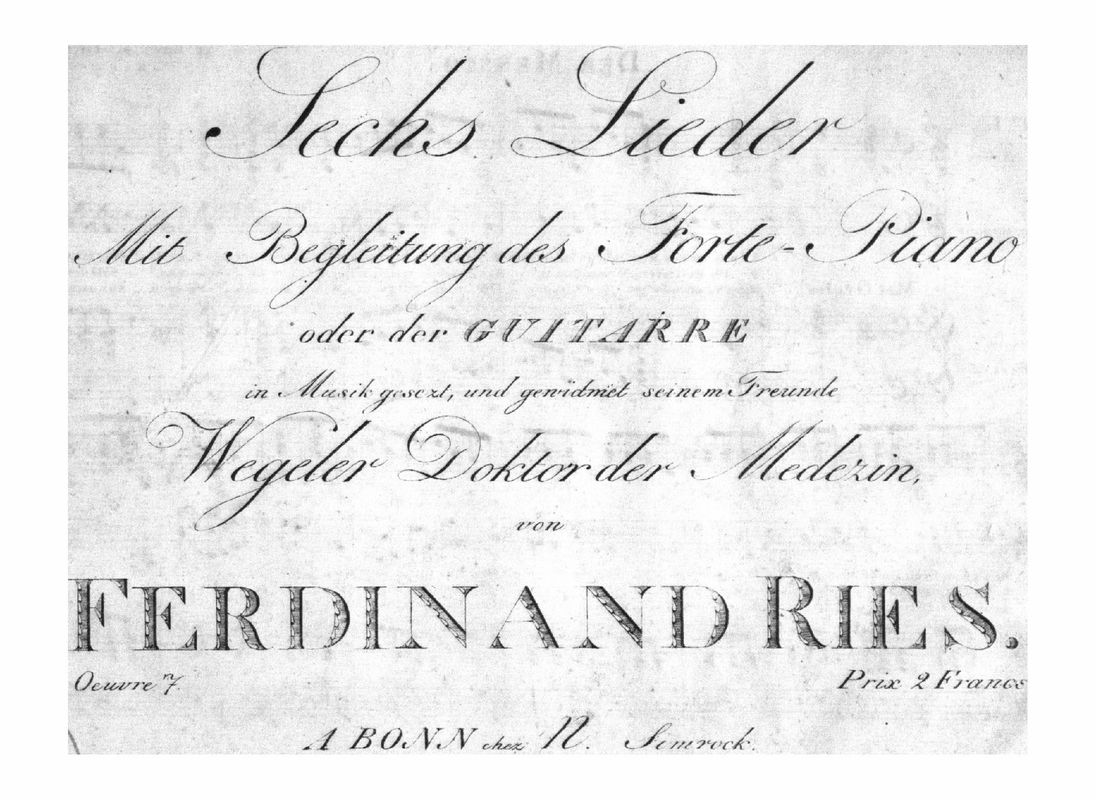 Sechs Lieder
Mit Begleitung des Forte-Piano
oder der GUITARRE
in Musik gesezt, und gewidmet seinem Freunde
Wegeler Doktor der Medezin,
von
FERDINAND RIES.
Oeuvre 7. Prix 2 Francs
A BONN chez N. Simrock.